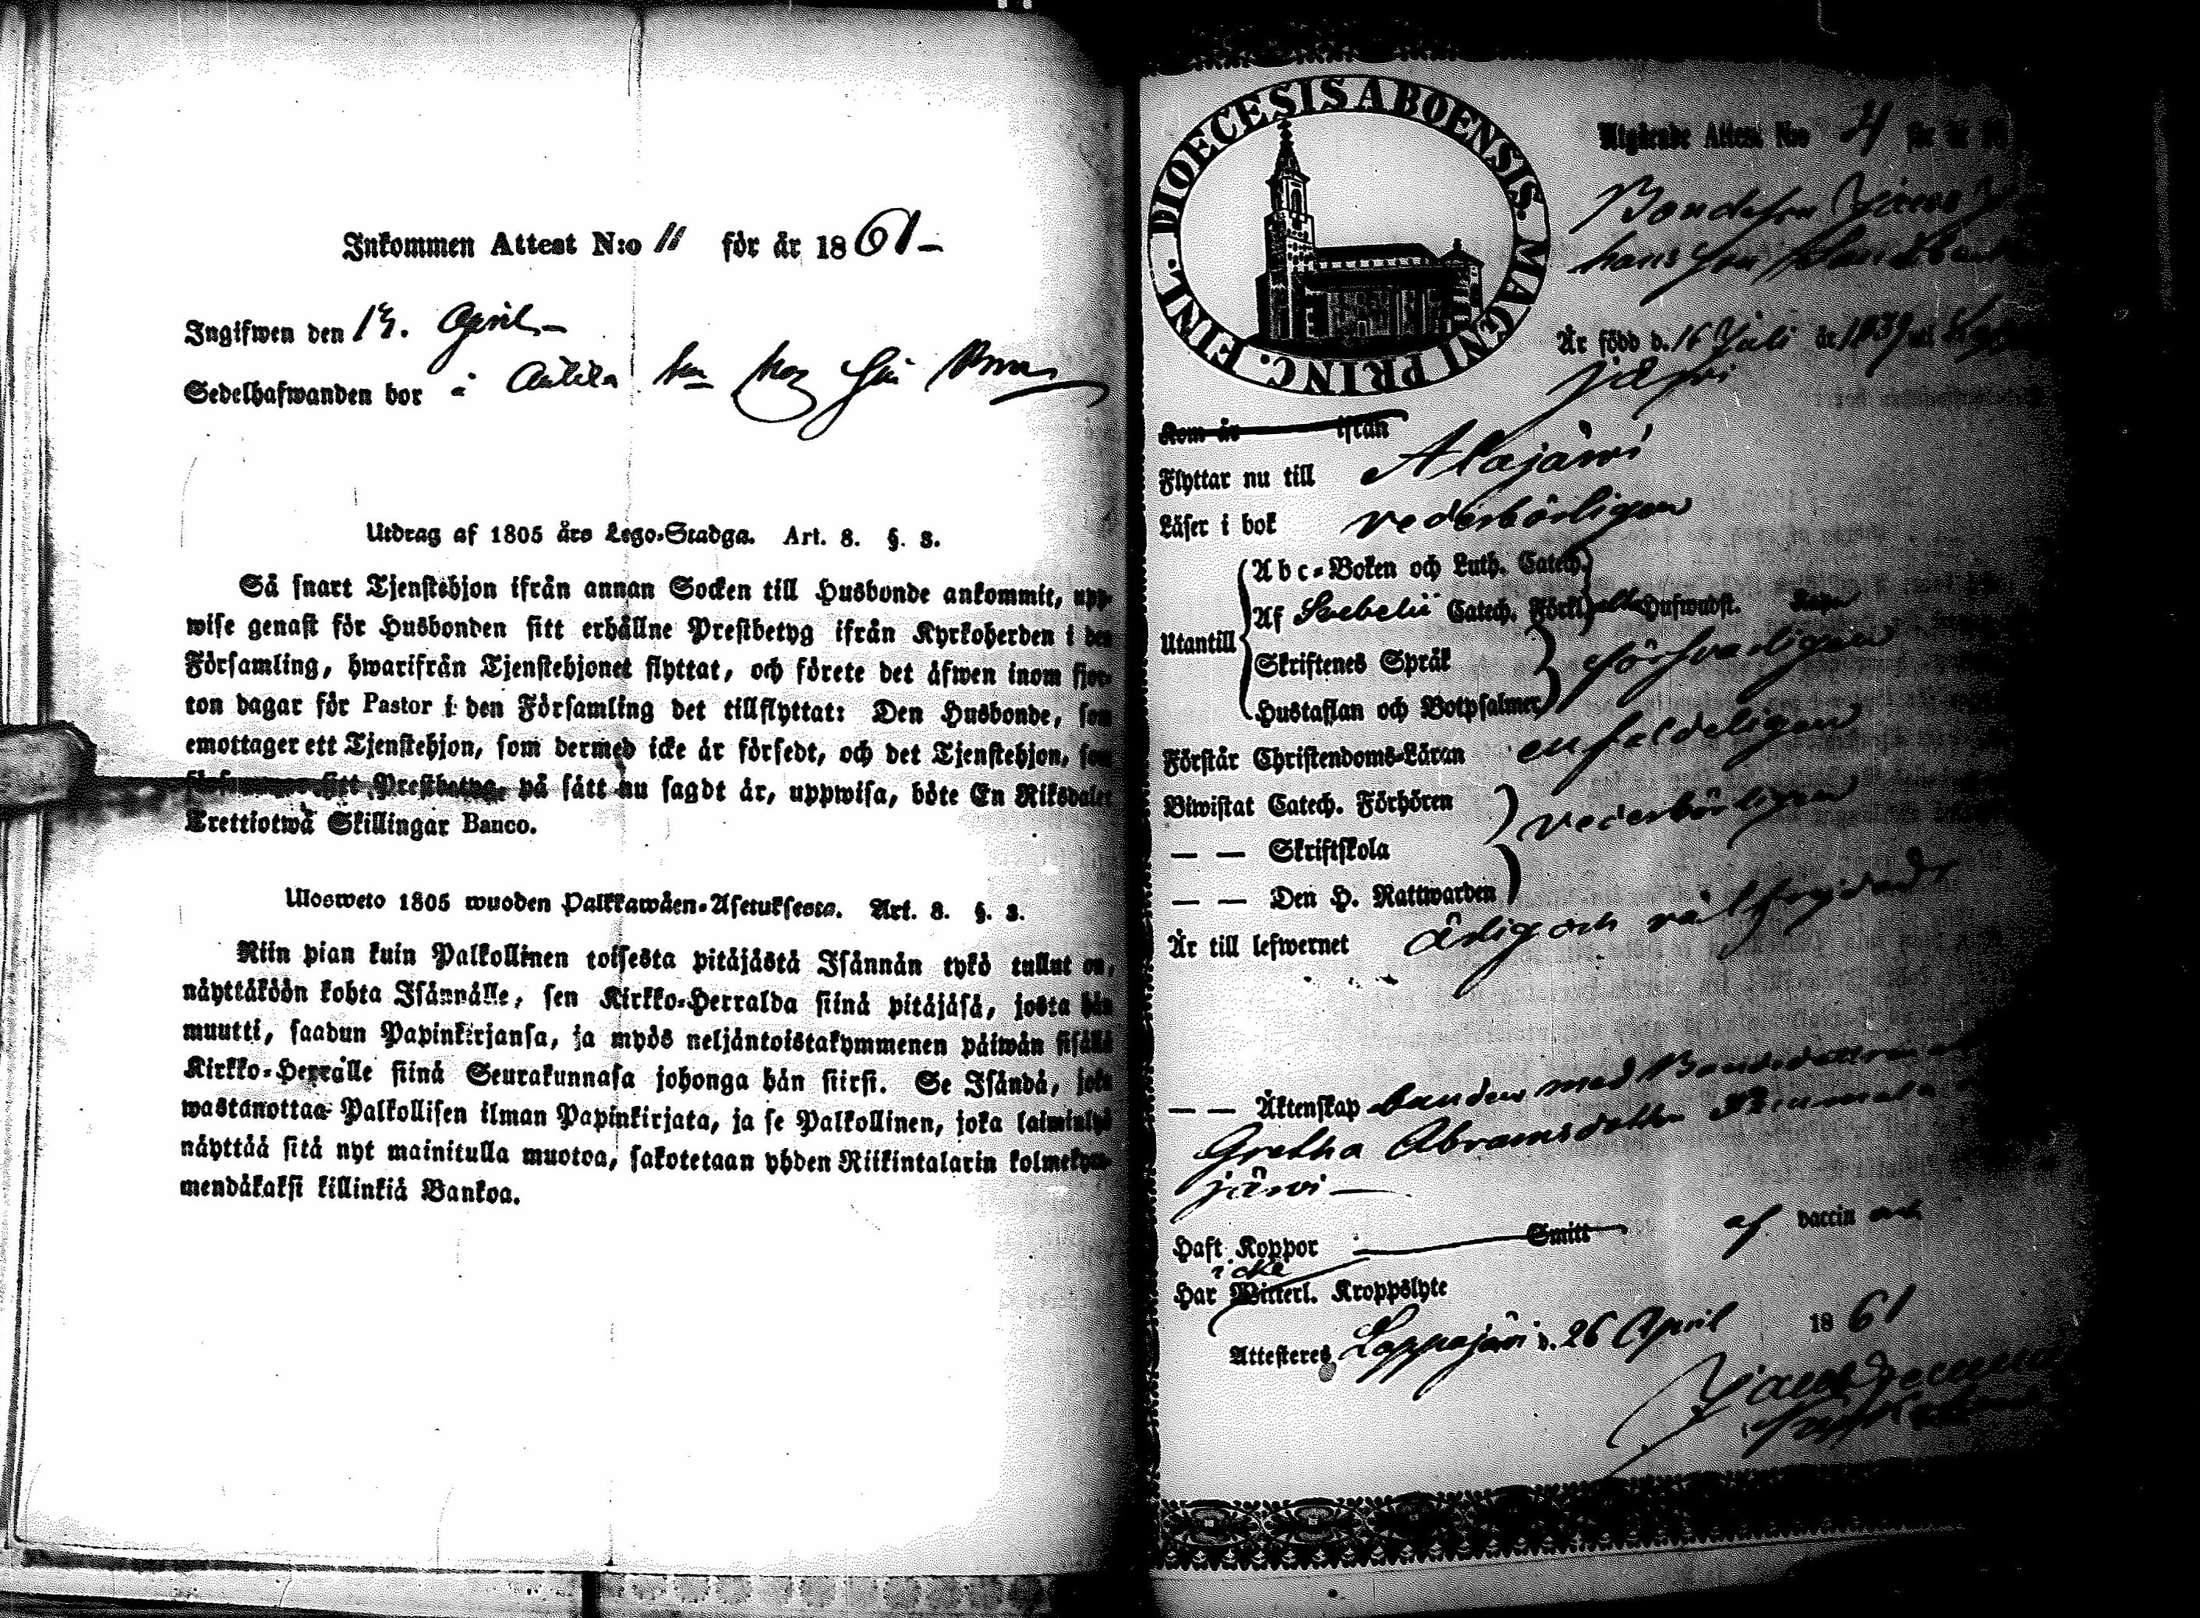 Inkommen Attest N:o 11 för år 1861
Ingifwen den 13. April
Sedelhafwanden bor i
Utdrag af 1805 års Lego-Stadga. Art. 8. §. 3.
Så snart Tjenstehjon ifrån annan Socken till Husbonde ankommit, upp-
wise genast för Husbonden sitt erhållne Prestbetyg ifrån Kyrkoherden i den
Församling, hwarifrån Tjenstehjonet flyttat, och förete det äfwen inom fjor-
ton dagar för Pastor i den Församling det tillflyttat: Den Husbonde, som
emottager ett Tjenstehjon, som dermed icke är försedt, och det Tjenstehjon, som
sitt Prestbetyg, på sätt nu sagdt är, uppwisa, böte En Riksdaler
Trettiotwå Skillingar Banco.
Ulosweto 1805 wuoden Palkkawäen-Asetuksesta. Art. 8. §. 3.
Niin pian kuin Palkollinen toisesta pitäjästä Isännän tykö tullut on,
näyttäköön kohta Isännälle, sen Kirkko-Herralda siinä pitäjäsä, josta hän
muutti, saadun Papinkirjansa, ja myös neljäntoistakymmenen päiwän sisällä
Kirkko-Herralle siinä Seurakunnasa johonga hän siirsi. Se Isändä, joka
wastanottaa Palkollisen ilman Papinkirjata, ja se Palkollinen, joka laiminlyö
näyttää sitä nyt mainitulla muotoa, sakotetaan yhden Riikintalarin kolmekym-
mendäkaksi killinkiä Bankoa.
FINL. DIOECESIS ABOENSIS. MAGNI PRINC.
Utgående Attest N:o 21 för år
Bondeson
hans
Är född d. 16 Juli år 1839
järvi
Kom år ifrån
Flyttar nu till Alajärvi
Läser i bok vederbörligen
Utantill
Abc-Boken och Luth. Catech.
Af Svebelii Catech. Förkl. Hufwudst.
Skriftenes Språk försvarligen
Hustaflan och Botpsalmer
Förstår Christendoms-Läran enfaldeligen
Biwistat Catech. Förhören
— — Skriftskola vederbörligen
— — Den H. Nattwarden
Är till lefwernet ärlig och välfrejdad
— — Äktenskap bunden med Bondedottren
Gretha Abramsdotter
järvi
Haft Koppor Smitt af vaccin
icke
Har Witterl. Kroppslyte
Attesteres Lappajärvi d. 26 April 1861